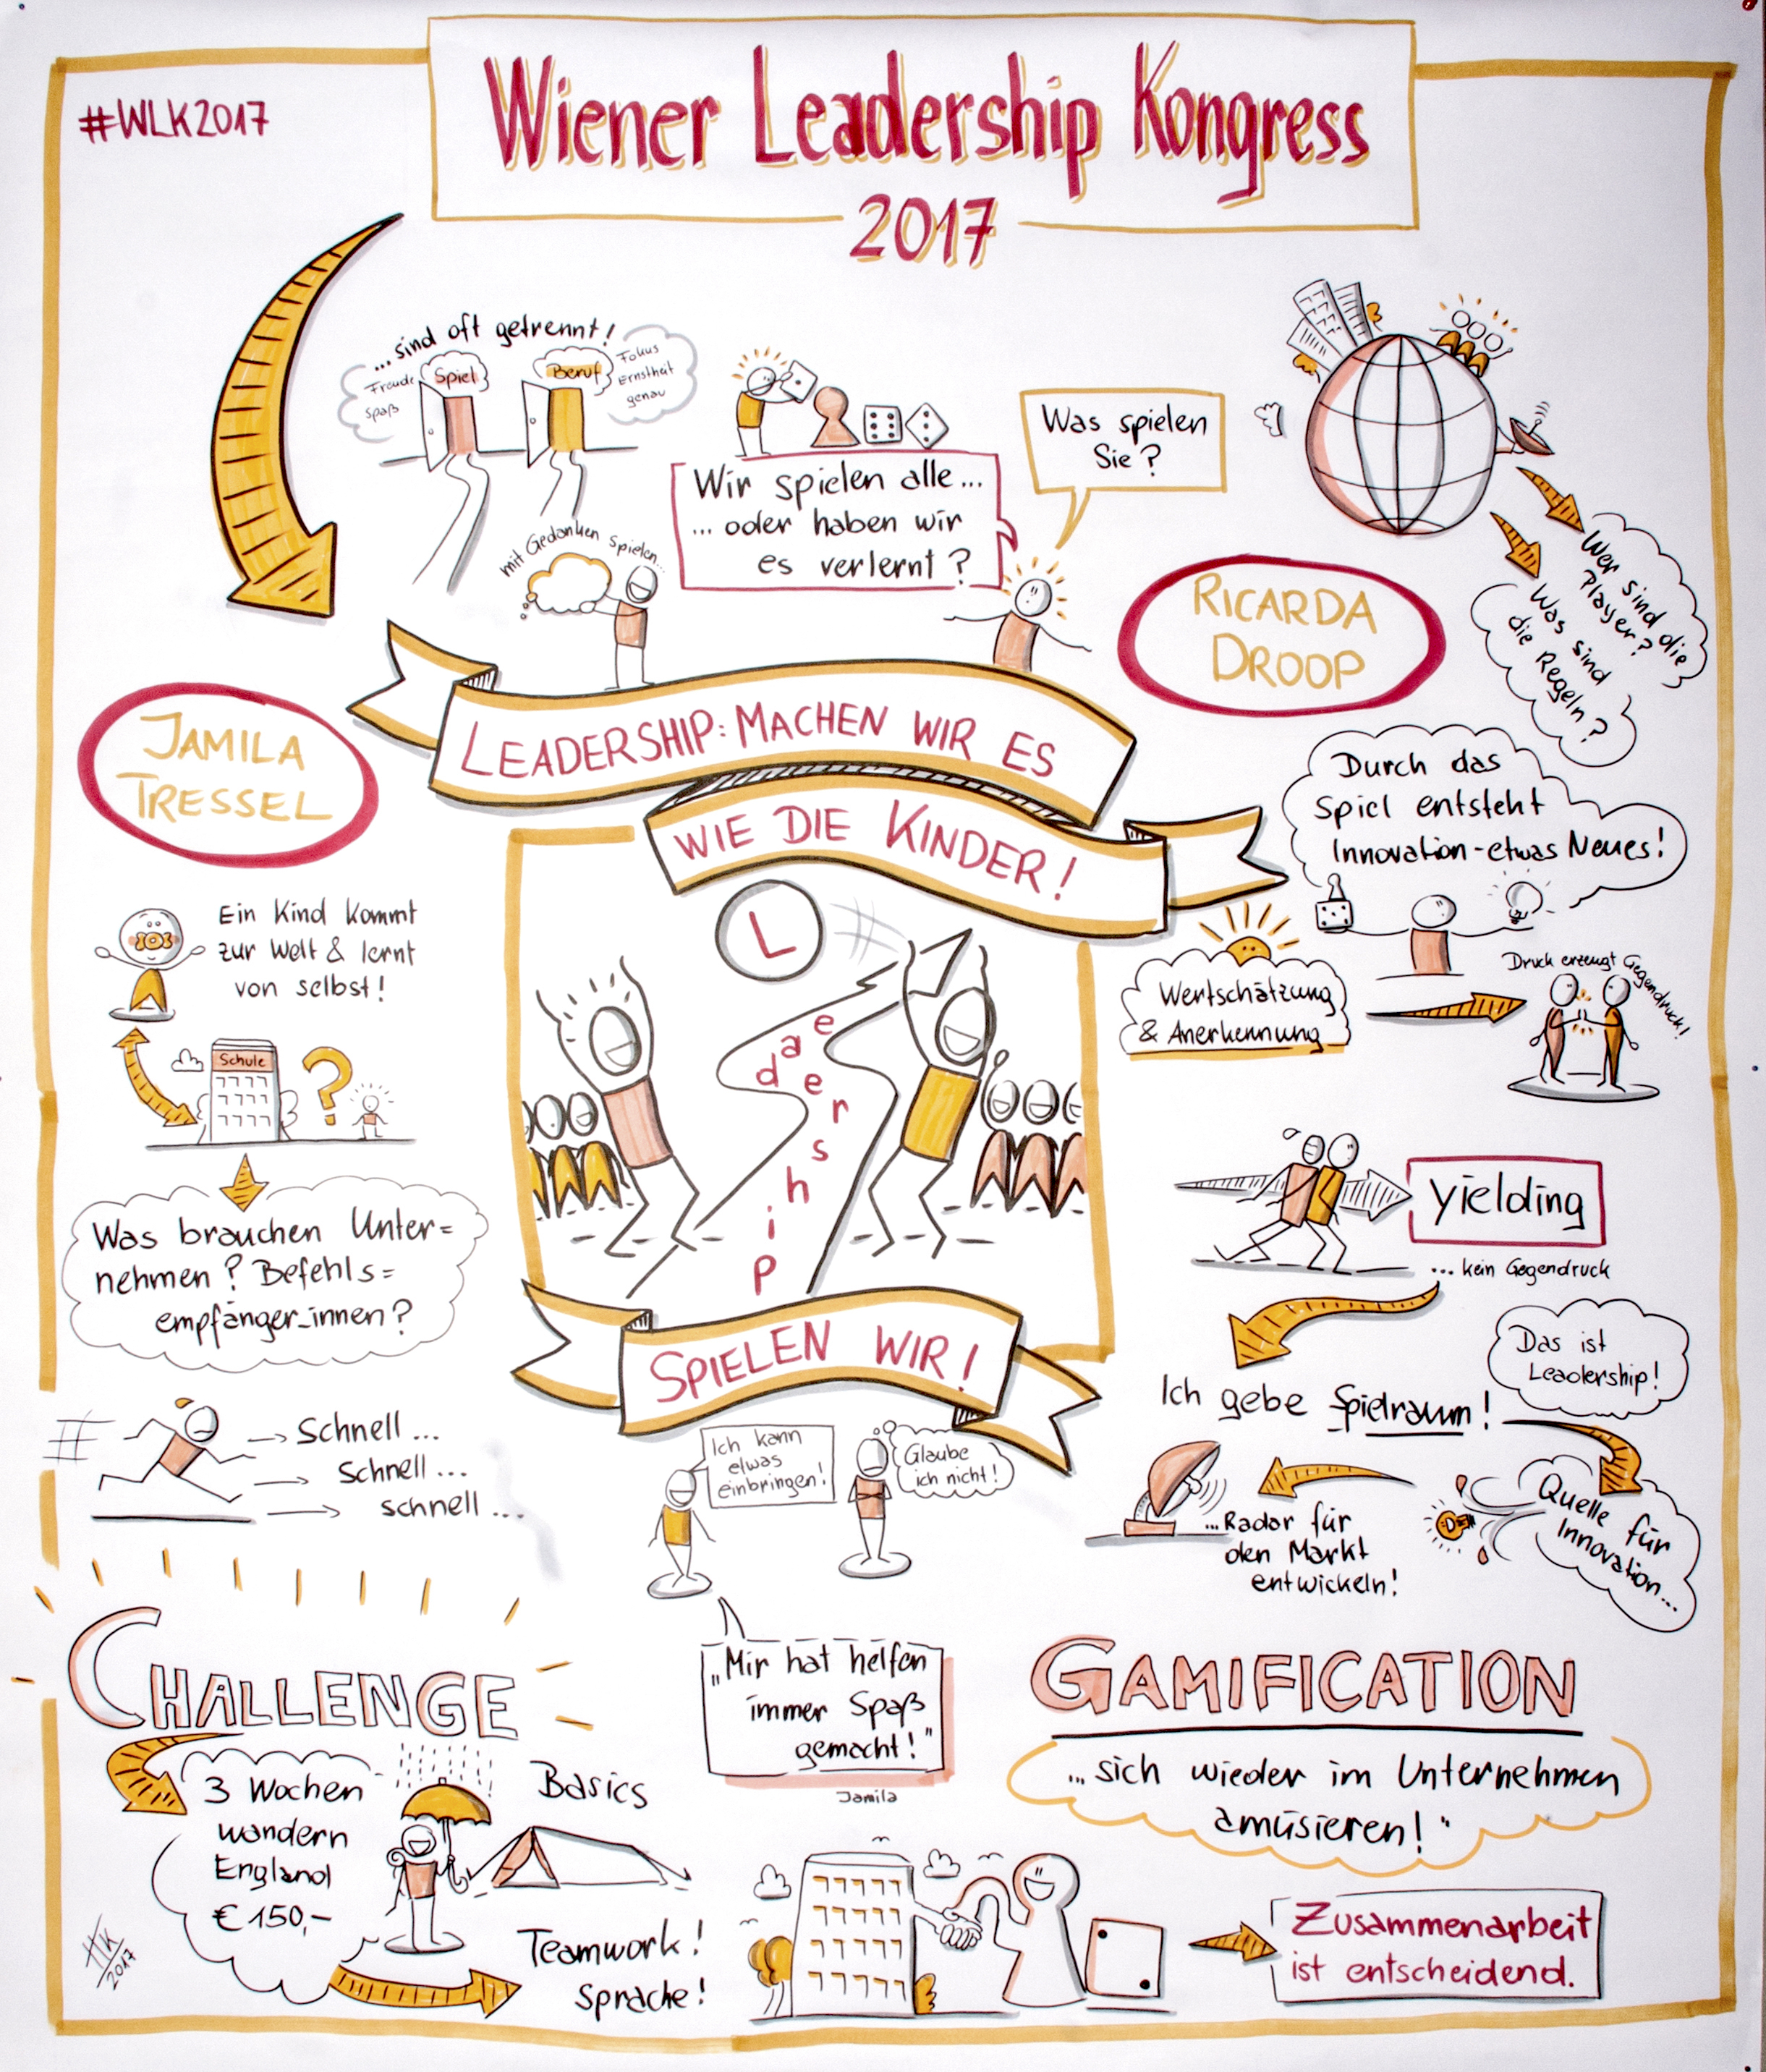 #WLK2017
Wiener Leadership Kongress
2017
...sind oft getrennt!
Freude
Spaß
Spiel
Beruf
Fokus
Ernstheit
genau
mit Gedanken spielen...
Wir spielen alle...
... oder haben wir
es verlernt?
Was spielen
Sie?
Wer sind die
Player?
Was sind
die Regeln?
RICARDA
DROOP
JAMILA
TRESSEL
LEADERSHIP: MACHEN WIR ES
WIE DIE KINDER!
L
Leadership
SPIELEN WIR!
Ein Kind kommt
zur Welt & lernt
von selbst!
Schule
?
Was brauchen Unter=
nehmen? Befehls=
empfänger_innen?
Schnell...
Schnell...
schnell...
Durch das
Spiel entsteht
Innovation - etwas Neues!
Wertschätzung
& Anerkennung
Druck erzeugt Gegendruck!
yielding
... kein Gegendruck
Das ist
Leadership!
Ich gebe Spielraum!
Quelle für
Innovation...
...Radar für
den Markt
entwickeln!
Ich kann
etwas
einbringen!
Glaube
ich nicht!
„Mir hat helfen
immer Spaß
gemacht!"
Jamila
CHALLENGE
3 Wochen
wandern
England
€ 150,-
Basics
Teamwork!
Sprache!
GAMIFICATION
„sich wieder im Unternehmen
amüsieren!"
Zusammenarbeit
ist entscheidend.
HK
2017